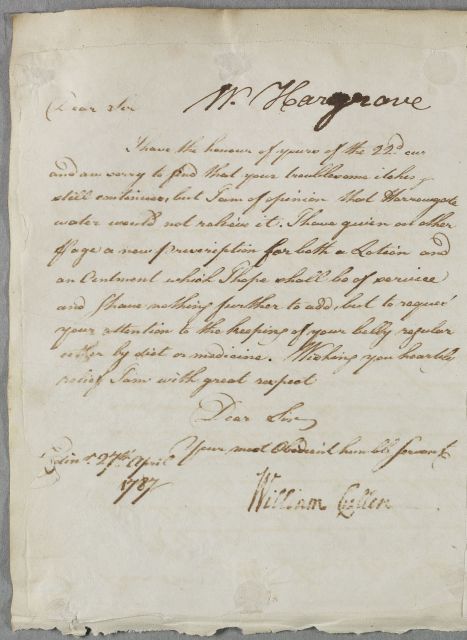 Dear Sir
W. Hargrove
I have the honour of yours of the 22d cur
and am sorry to find that your troublesome itching
still continues, but I am of opinion that Harrowgate
water would not relieve it. I have given on other
Page a new prescription for both a Lotion and
an Ointment which I hope shall be of service
and I have nothing further to add, but to request
your attention to the keeping of your belly regular
either by diet or medicine. Wishing you heartily
relief I am with great respect
Dear Sir
Your most Obedient humble servant
Edinr. 27th. April
1787
William Cullen